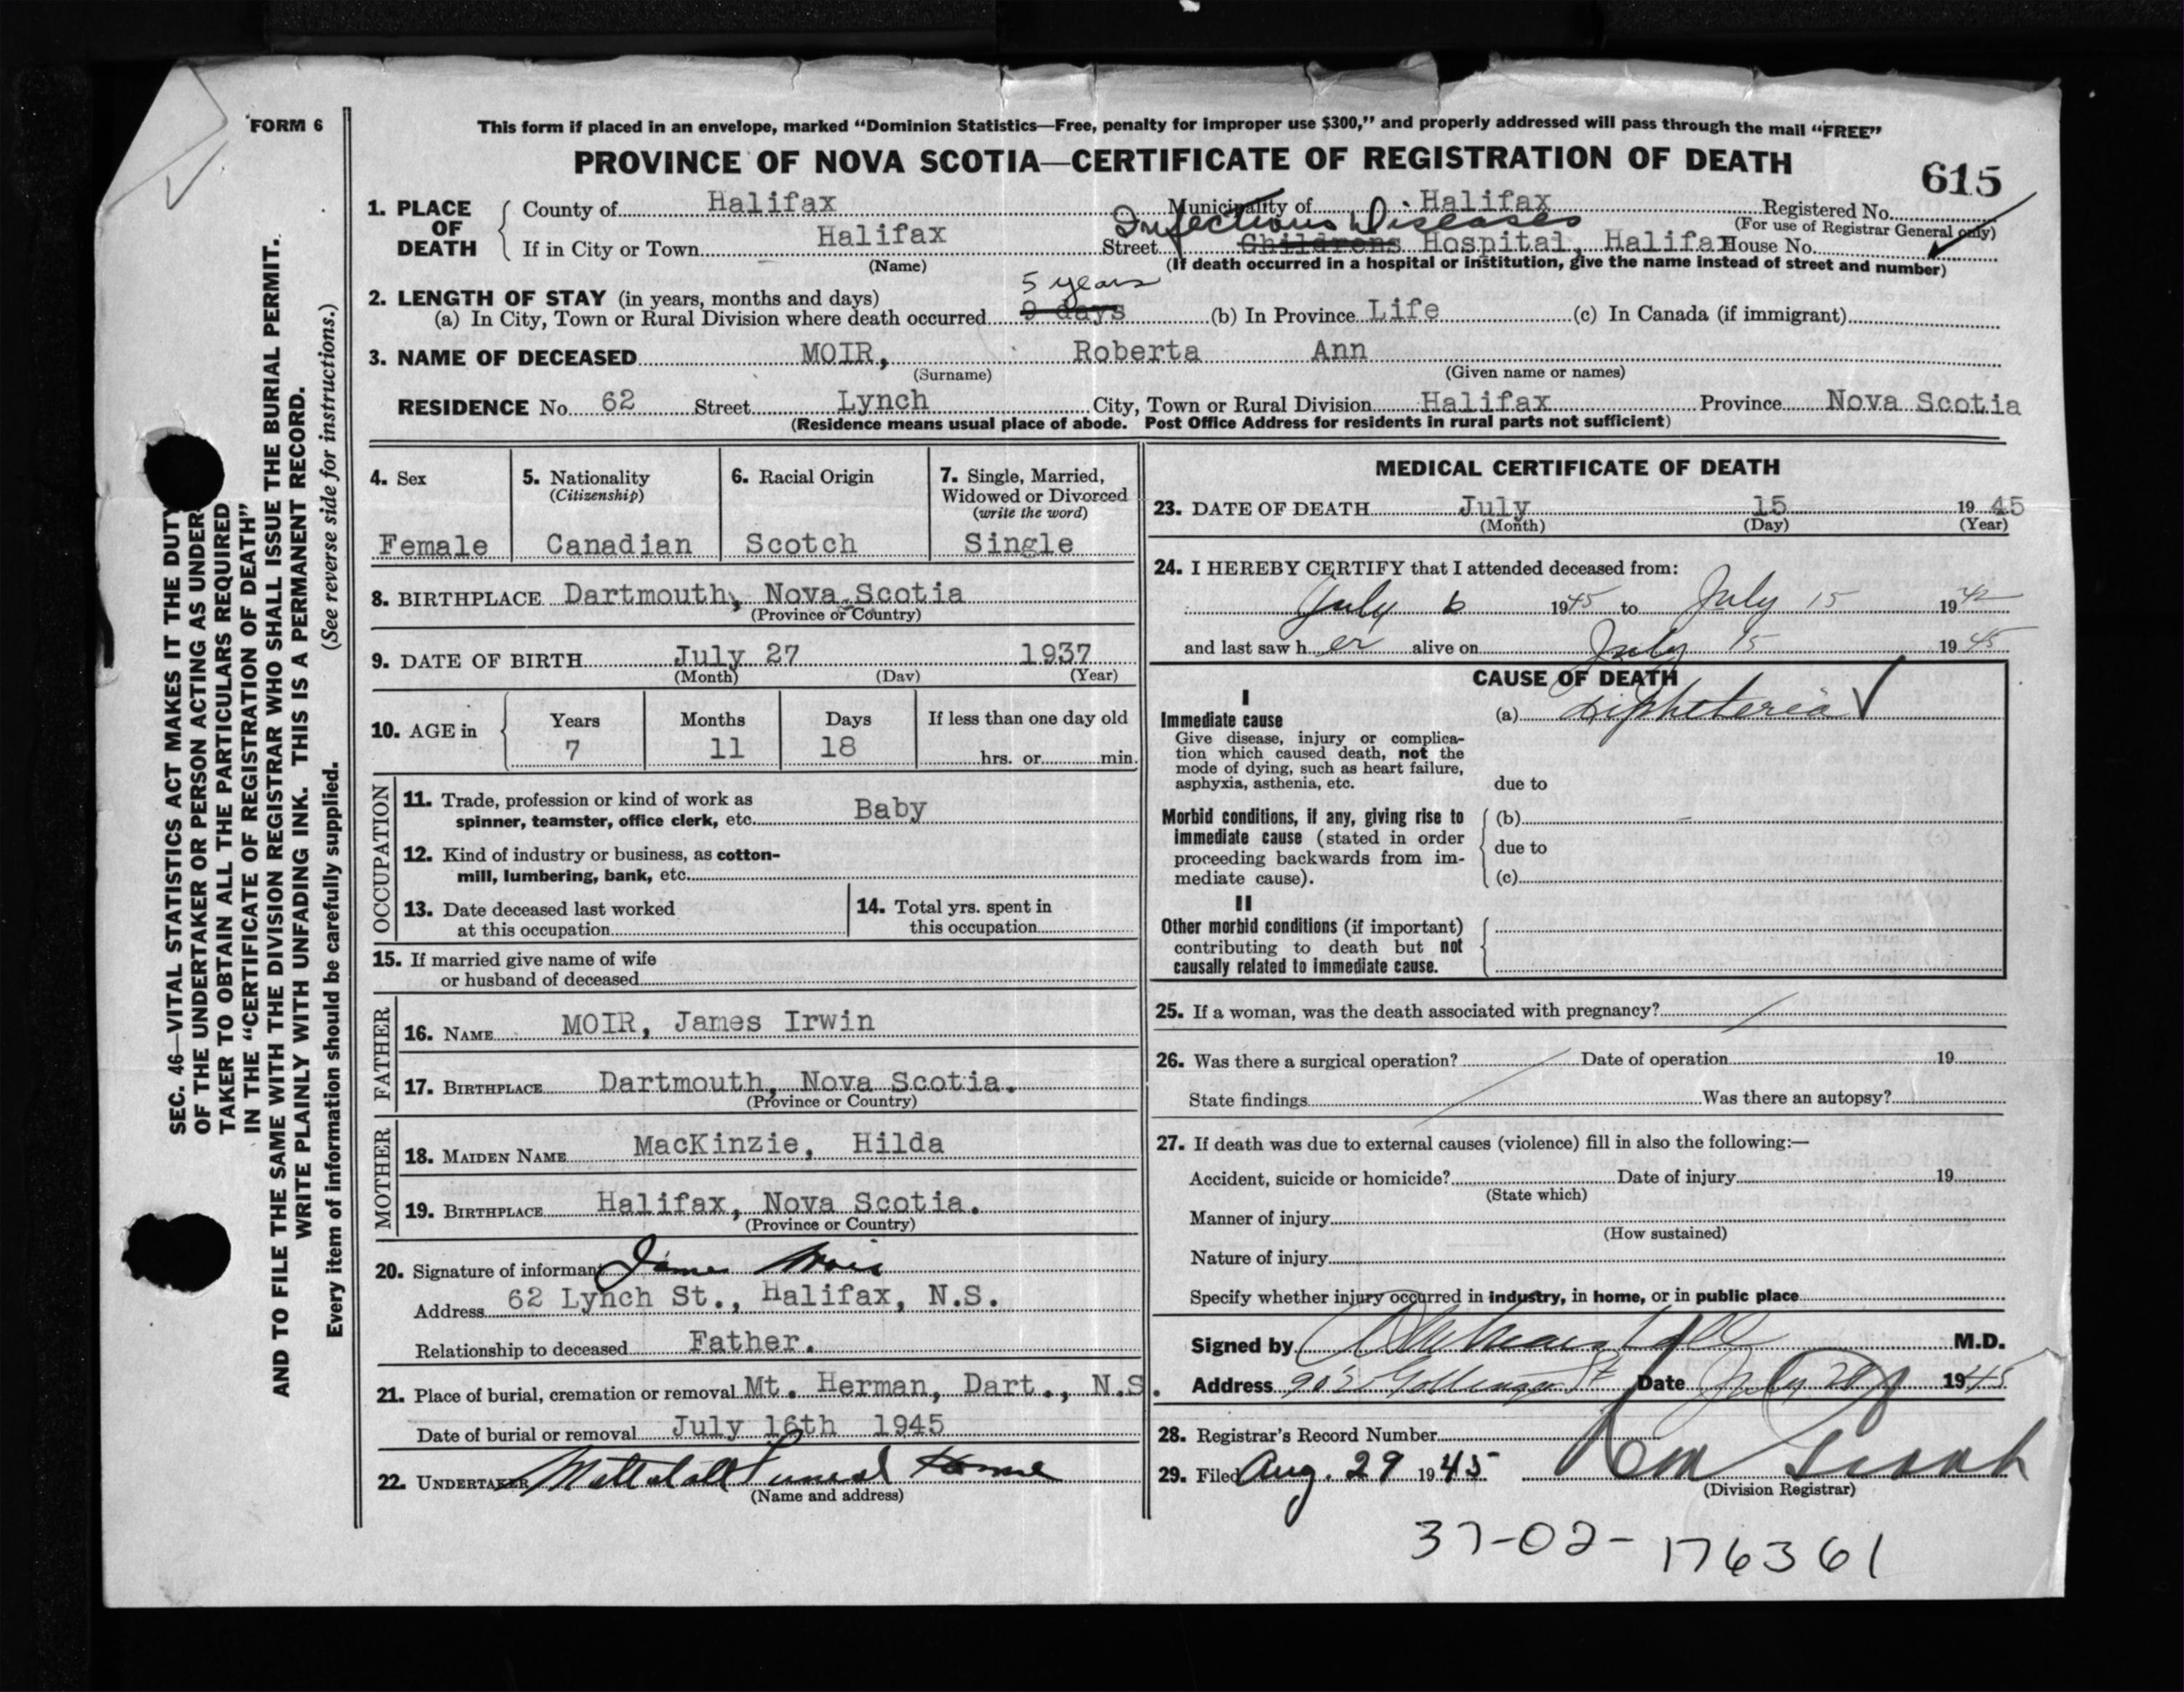 FORM 6
This form if placed in an envelope, marked “Dominion Statistics—Free, penalty for improper use $300,” and properly addressed will pass through the mail “FREE”
PROVINCE OF NOVA SCOTIA—CERTIFICATE OF REGISTRATION OF DEATH
615
1. PLACE OF DEATH
County of Halifax Municipality of Halifax Registered No.
(For use of Registrar General only)
Infectious Diseases
If in City or Town Halifax Street Childrens Hospital, Halifax House No.
(Name) (If death occurred in a hospital or institution, give the name instead of street and number)
2. LENGTH OF STAY (in years, months and days)
5 years
(a) In City, Town or Rural Division where death occurred 9 days (b) In Province Life (c) In Canada (if immigrant)
3. NAME OF DECEASED MOIR, Roberta Ann
(Surname) (Given name or names)
RESIDENCE No. 62 Street Lynch City, Town or Rural Division Halifax Province Nova Scotia
(Residence means usual place of abode. Post Office Address for residents in rural parts not sufficient)
4. Sex
Female
5. Nationality
(Citizenship)
Canadian
6. Racial Origin
Scotch
7. Single, Married,
Widowed or Divorced
(write the word)
Single
8. BIRTHPLACE Dartmouth, Nova Scotia
(Province or Country)
9. DATE OF BIRTH July 27 1937
(Month) (Day) (Year)
10. AGE in
Years Months Days If less than one day old
7 11 18 hrs. or min.
OCCUPATION
11. Trade, profession or kind of work as
spinner, teamster, office clerk, etc. Baby
12. Kind of industry or business, as cotton-
mill, lumbering, bank, etc.
13. Date deceased last worked
at this occupation
14. Total yrs. spent in
this occupation
15. If married give name of wife
or husband of deceased
FATHER
16. NAME MOIR, James Irwin
17. BIRTHPLACE Dartmouth, Nova Scotia.
(Province or Country)
MOTHER
18. MAIDEN NAME MacKinzie, Hilda
19. BIRTHPLACE Halifax, Nova Scotia.
(Province or Country)
20. Signature of informant James Moir
Address 62 Lynch St., Halifax, N.S.
Relationship to deceased Father.
21. Place of burial, cremation or removal Mt. Herman, Dart., N.S.
Date of burial or removal July 16th 1945
22. UNDERTAKER Mattatall Funeral Home
(Name and address)
MEDICAL CERTIFICATE OF DEATH
23. DATE OF DEATH July 15 1945
(Month) (Day) (Year)
24. I HEREBY CERTIFY that I attended deceased from:
July 6 1945 to July 15 19
and last saw h er alive on July 15 1945
CAUSE OF DEATH
I
Immediate cause
Give disease, injury or complica-
tion which caused death, not the
mode of dying, such as heart failure,
asphyxia, asthenia, etc.
(a) Dipheteria ✓
due to
Morbid conditions, if any, giving rise to
immediate cause (stated in order
proceeding backwards from im-
mediate cause).
(b)
due to
(c)
II
Other morbid conditions (if important)
contributing to death but not
causally related to immediate cause.
25. If a woman, was the death associated with pregnancy?
26. Was there a surgical operation? Date of operation 19
State findings Was there an autopsy?
27. If death was due to external causes (violence) fill in also the following:—
Accident, suicide or homicide? Date of injury 19
(State which)
Manner of injury
(How sustained)
Nature of injury
Specify whether injury occurred in industry, in home, or in public place
Signed by M.D.
Address St Date July 1945
28. Registrar's Record Number
29. Filed Aug. 29 1945
(Division Registrar)
37-02-176361
SEC. 46—VITAL STATISTICS ACT MAKES IT THE DUTY
OF THE UNDERTAKER OR PERSON ACTING AS UNDER
TAKER TO OBTAIN ALL THE PARTICULARS REQUIRED
IN THE “CERTIFICATE OF REGISTRATION OF DEATH”
AND TO FILE THE SAME WITH THE DIVISION REGISTRAR WHO SHALL ISSUE THE BURIAL PERMIT.
WRITE PLAINLY WITH UNFADING INK. THIS IS A PERMANENT RECORD.
Every item of information should be carefully supplied. (See reverse side for instructions.)